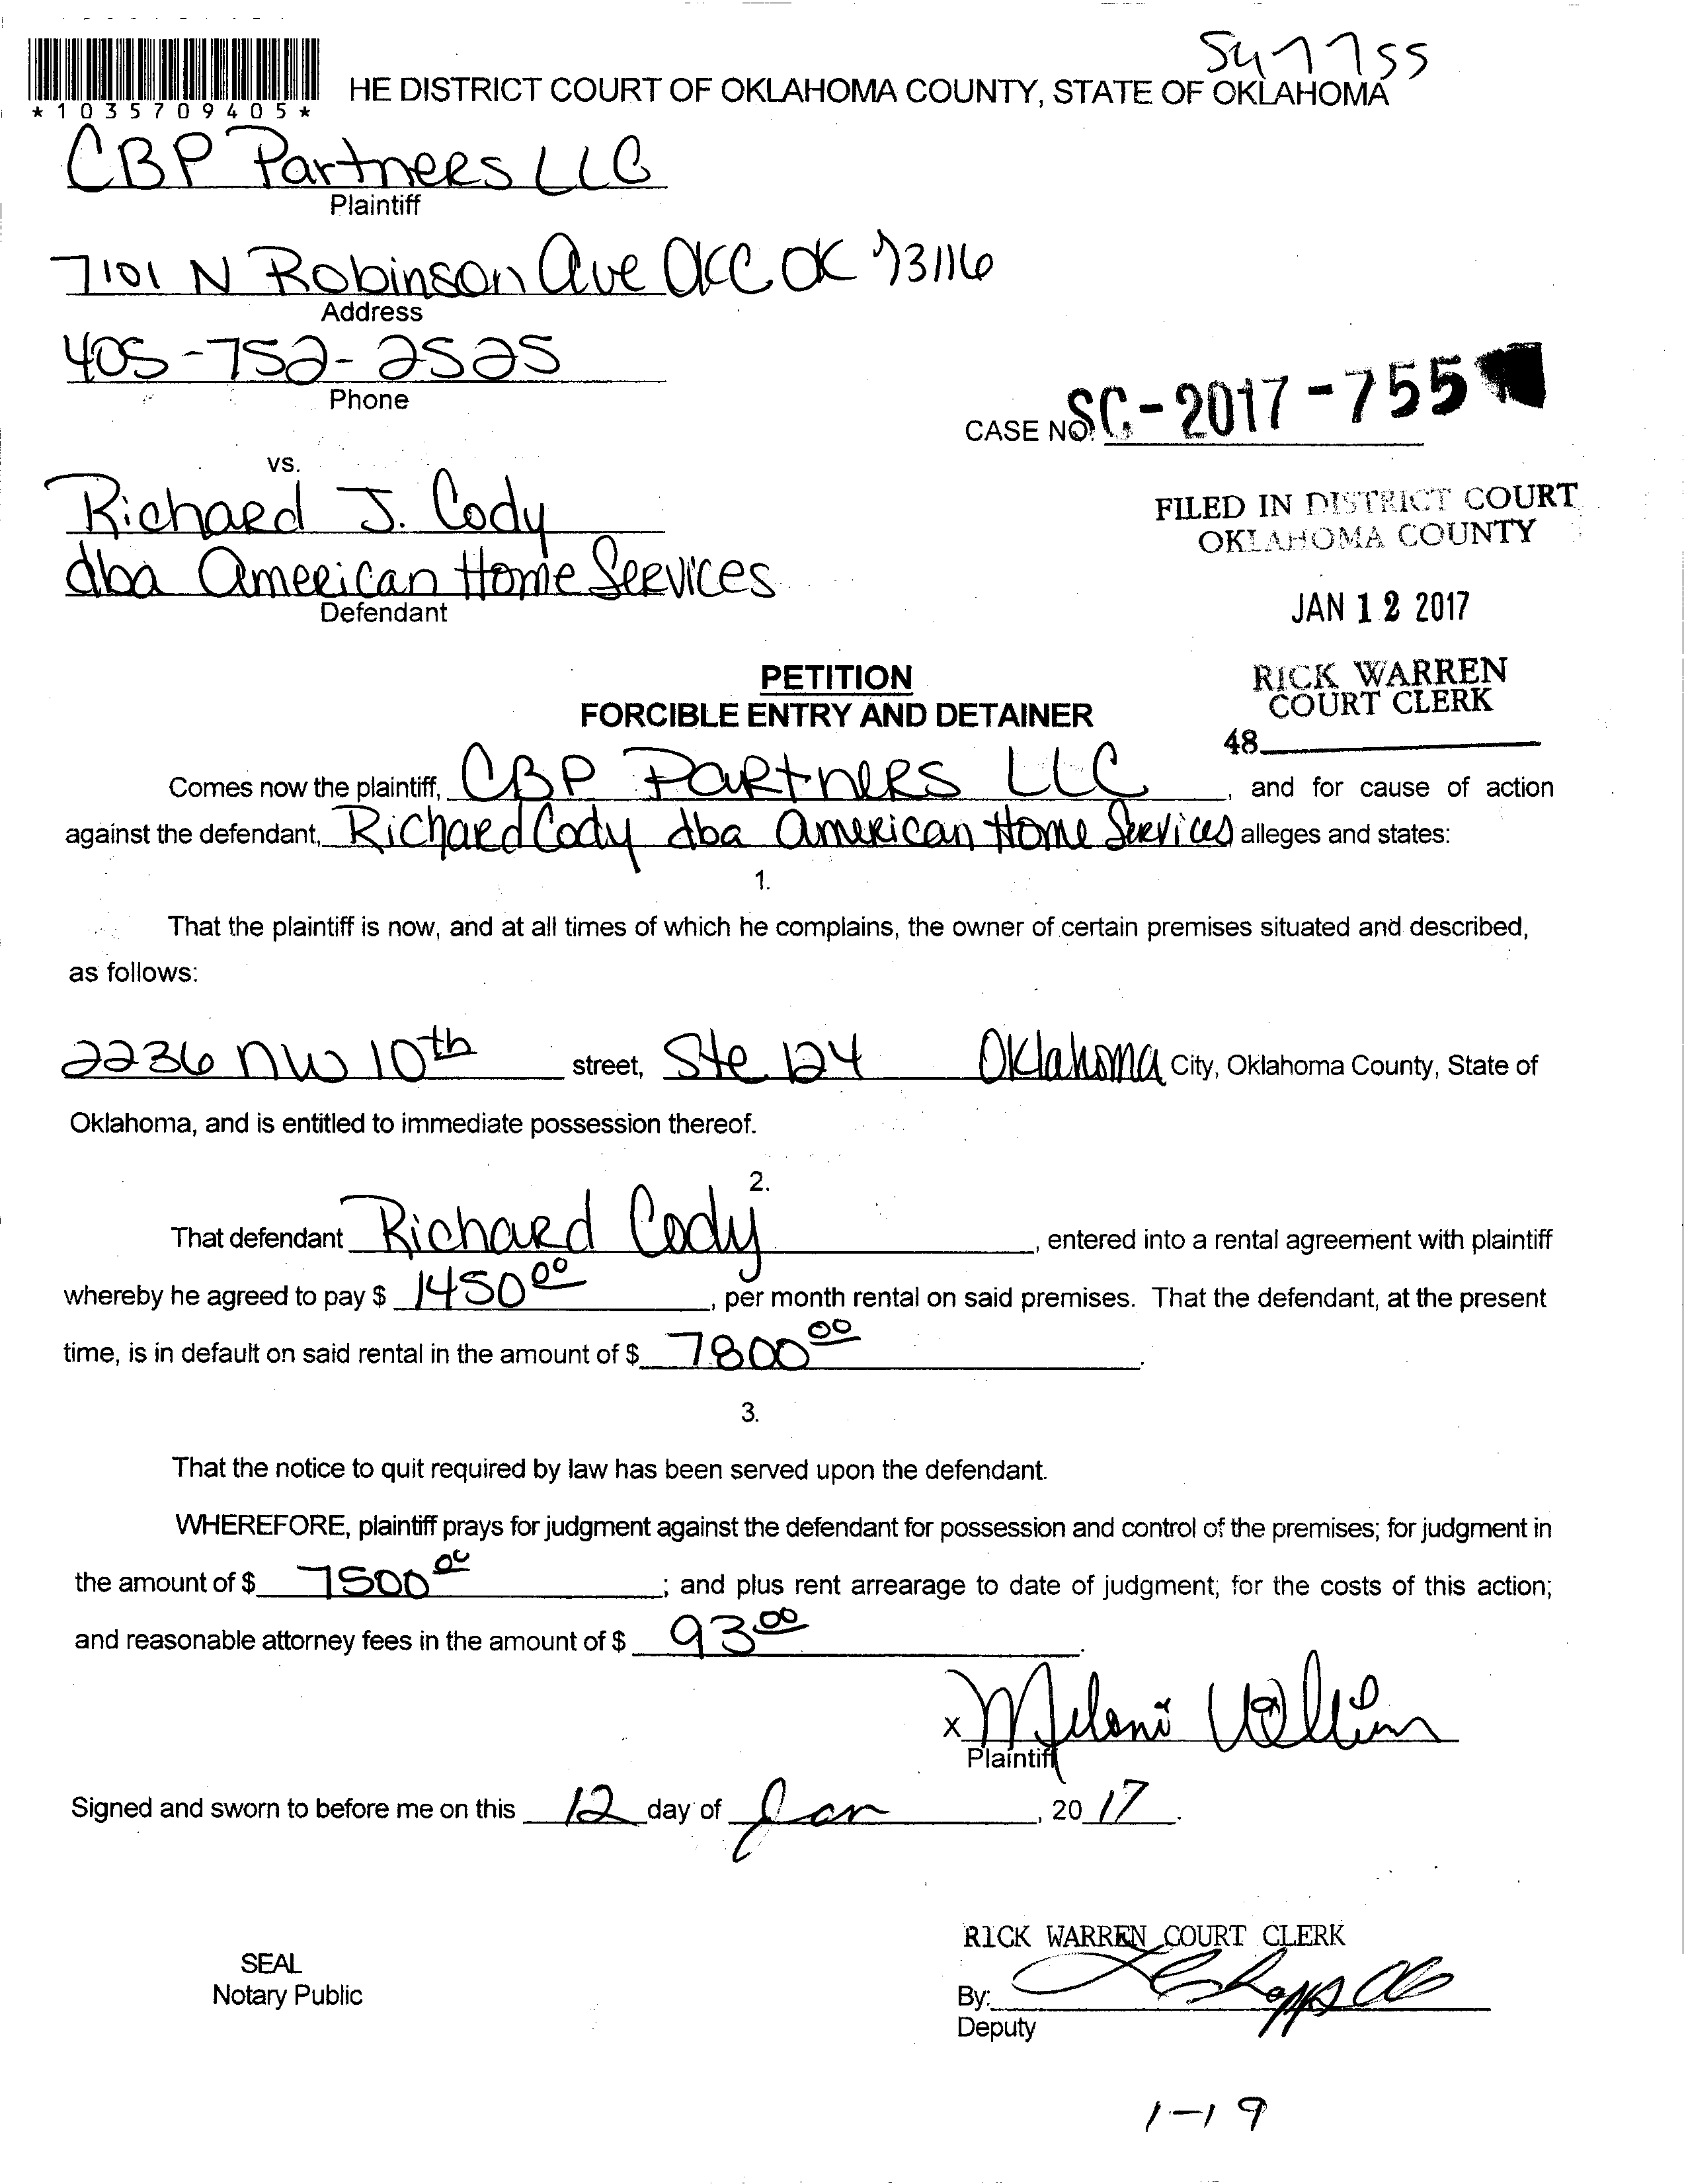 547755
*1035709405*
HE DISTRICT COURT OF OKLAHOMA COUNTY, STATE OF OKLAHOMA
CBP Partners LLC
Plaintiff
7101 N Robinson Ave OKC OK 73116
Address
405-752-2525
Phone
CASE NO. SC-2017-755
vs.
Richard J. Cody
dba American Home Services
Defendant
FILED IN DISTRICT COURT
OKLAHOMA COUNTY
JAN 12 2017
RICK WARREN
COURT CLERK
48
PETITION
FORCIBLE ENTRY AND DETAINER
Comes now the plaintiff, CBP Partners LLC, and for cause of action
against the defendant, Richard Cody dba American Home Services alleges and states:
1.
That the plaintiff is now, and at all times of which he complains, the owner of certain premises situated and described,
as follows:
2236 NW 10th street, Ste 124 Oklahoma City, Oklahoma County, State of
Oklahoma, and is entitled to immediate possession thereof.
2.
That defendant Richard Cody, entered into a rental agreement with plaintiff
whereby he agreed to pay $ 1450 00, per month rental on said premises. That the defendant, at the present
time, is in default on said rental in the amount of $ 7800 00.
3.
That the notice to quit required by law has been served upon the defendant.
WHEREFORE, plaintiff prays for judgment against the defendant for possession and control of the premises; for judgment in
the amount of $ 7500 00; and plus rent arrearage to date of judgment; for the costs of this action;
and reasonable attorney fees in the amount of $ 93 00.
x
Plaintiff
Signed and sworn to before me on this 12 day of Jan, 20 17.
RICK WARREN COURT CLERK
SEAL
Notary Public
By:
Deputy
1-19